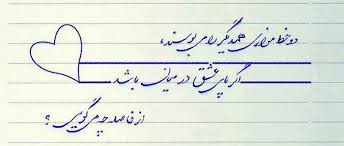 دو خط موازی همدیگر را می بوسند،
اگر پای عشق در میان باشد
از فاصله چه می گویی ؟